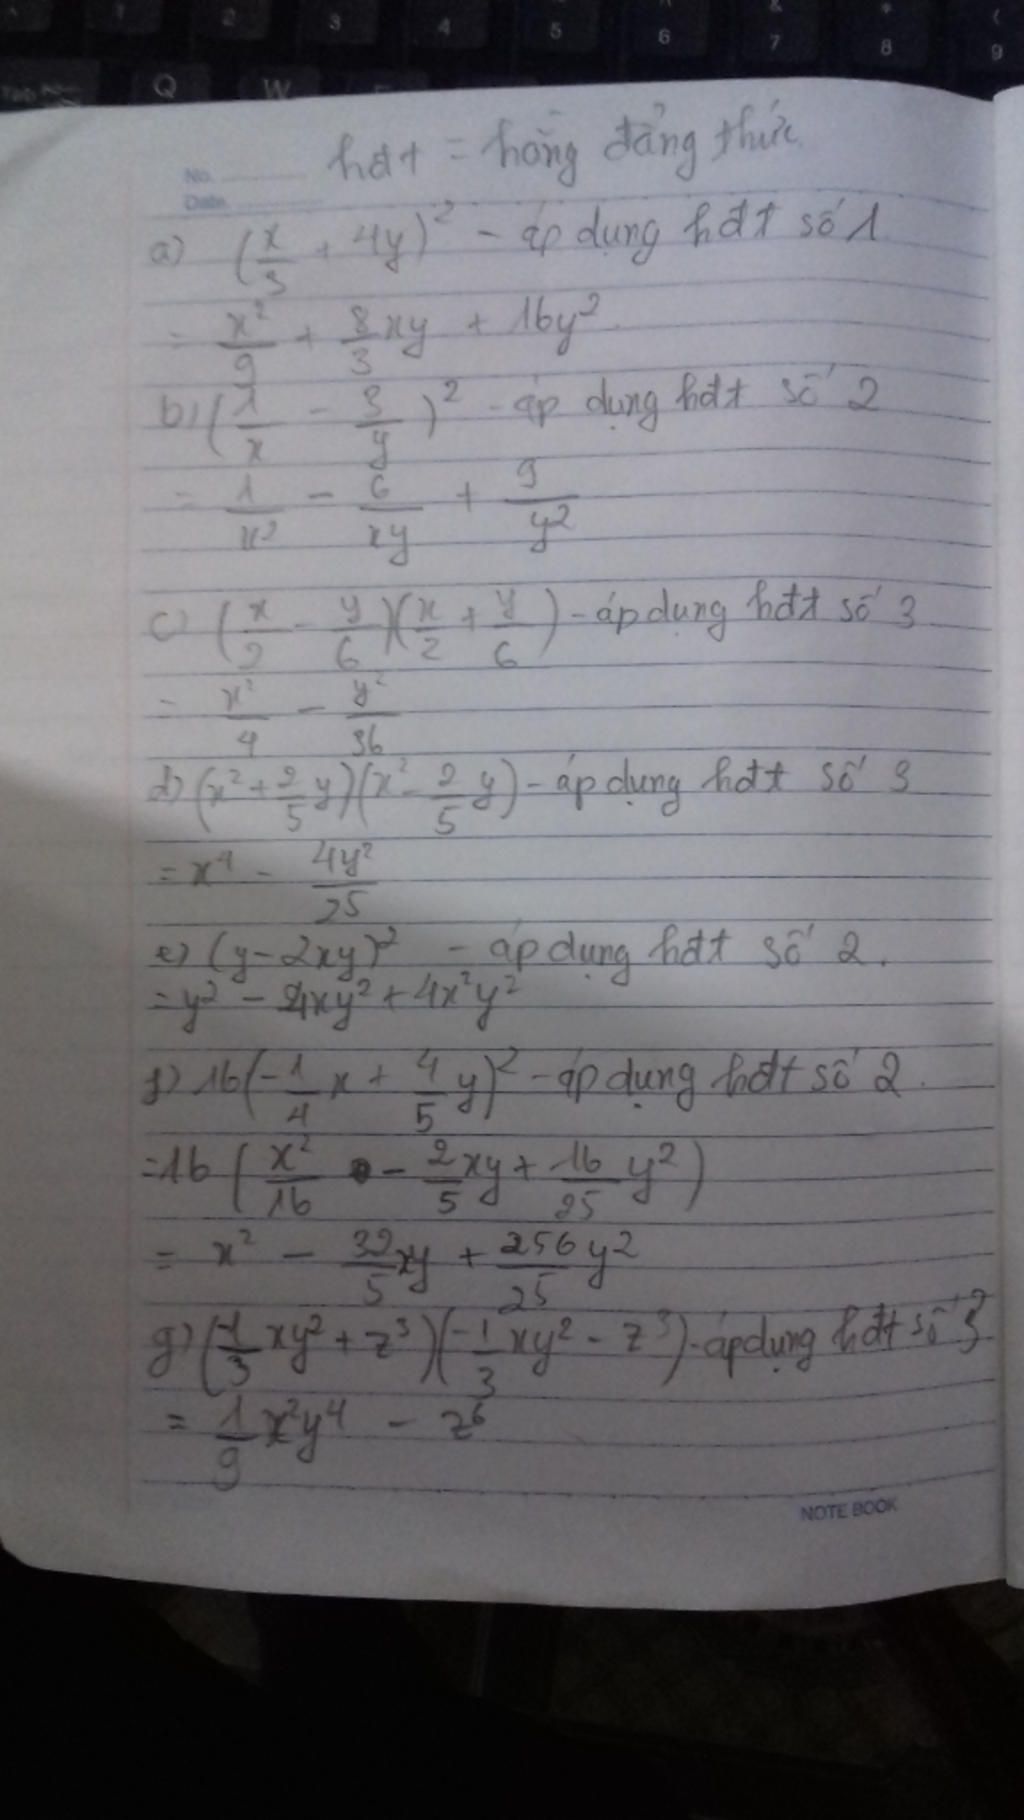 1 2 3 4 5 6 7 8 9
Tab Q W
hđt = hằng đẳng thức
No.
Date
a) (x/3 + 4y)² - áp dụng hđt số 1
= x²/9 + 8/3 xy + 16y²
b) (1/x - 3/y)² - áp dụng hđt số 2
= 1/x² - 6/xy + 9/y²
c) (x/2 - y/6)(x/2 + y/6) - áp dụng hđt số 3
= x²/4 - y²/36
d) (x² + 2/5 y)(x² - 2/5 y) - áp dụng hđt số 3
= x⁴ - 4y²/25
e) (y - 2xy)² - áp dụng hđt số 2.
= y² - 4xy² + 4x²y²
f) 16(-1/4 x + 4/5 y)² - áp dụng hđt số 2.
= 16 (x²/16 - 2/5 xy + 16/25 y²)
= x² - 32/5 xy + 256/25 y²
g) (-1/3 xy² + z³)(-1/3 xy² - z³) - áp dụng hđt số 3
= 1/9 x²y⁴ - z⁶
NOTE BOOK